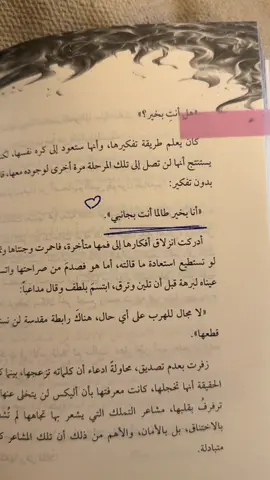 «هل أنتِ بخير؟»
كان يعلم طريقة تفكيرها، وأنها ستعود إلى كره نفسها، لكنه
يستنتج أنها لن تصل إلى تلك المرحلة مرة أخرى لوجوده معها،
بدون تفكير:
«أنا بخير طالما أنت بجانبي».
أدركت انزلاق أفكارها إلى فمها متأخرة، فاحمرت وجنتاها
لو تستطيع استعادة ما قالته، أما هو فصدمَ من صراحتها
عيناه لبرهة قبل أن تلين وترق، ابتسمَ بلطف وقال مداعباً:
«لا مجال للهرب على أي حال، هناك رابطة مقدسة لن
قطعها».
زفرت بعدم تصديق، محاولةً ادعاء أن كلماته تزعجها، بينما
الحقيقة أنها تخجلها، كانت معرفتها بأن آليكس لن يتخلى عنها
ترفرفُ بقلبها، مشاعر التملك التي يشعر بها تجاهها لم
بالاختناق، بل بالأمان، والأهم من ذلك أن تلك المشاعر
متبادلة.